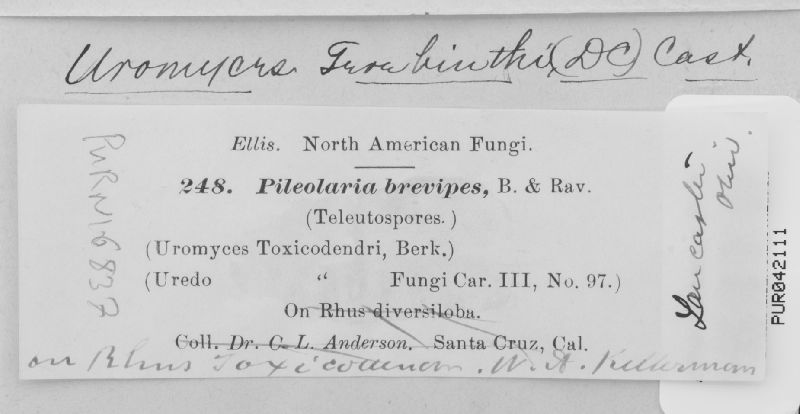 Uromyces Terebinthi (DC) Cast.
Ellis. North American Fungi.
248. Pileolaria brevipes, B. & Rav.
(Teleutospores.)
(Uromyces Toxicodendri, Berk.)
(Uredo “ Fungi Car. III, No. 97.)
On Rhus diversiloba.
Coll. Dr. C. L. Anderson. Santa Cruz, Cal.
on Rhus Toxicodendron. W. A. Kellerman
PURN16837
Lancaster
Ohio.
PUR042111